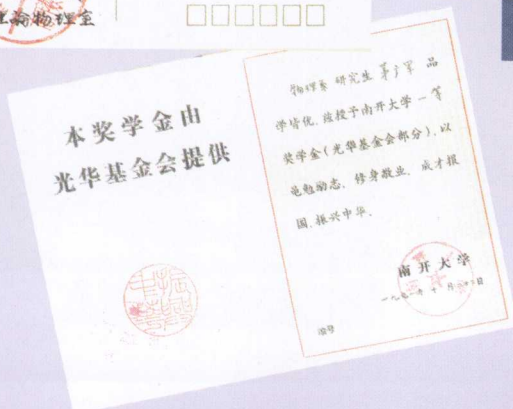 物理室
本奖学金由
光华基金会提供
物理系 研究生 茅广军 品
学皆优，兹授予南开大学一等
奖学金(光华基金会部分)，以
黾勉励志，修身敬业，成才报
国，振兴中华。
南开大学
编号